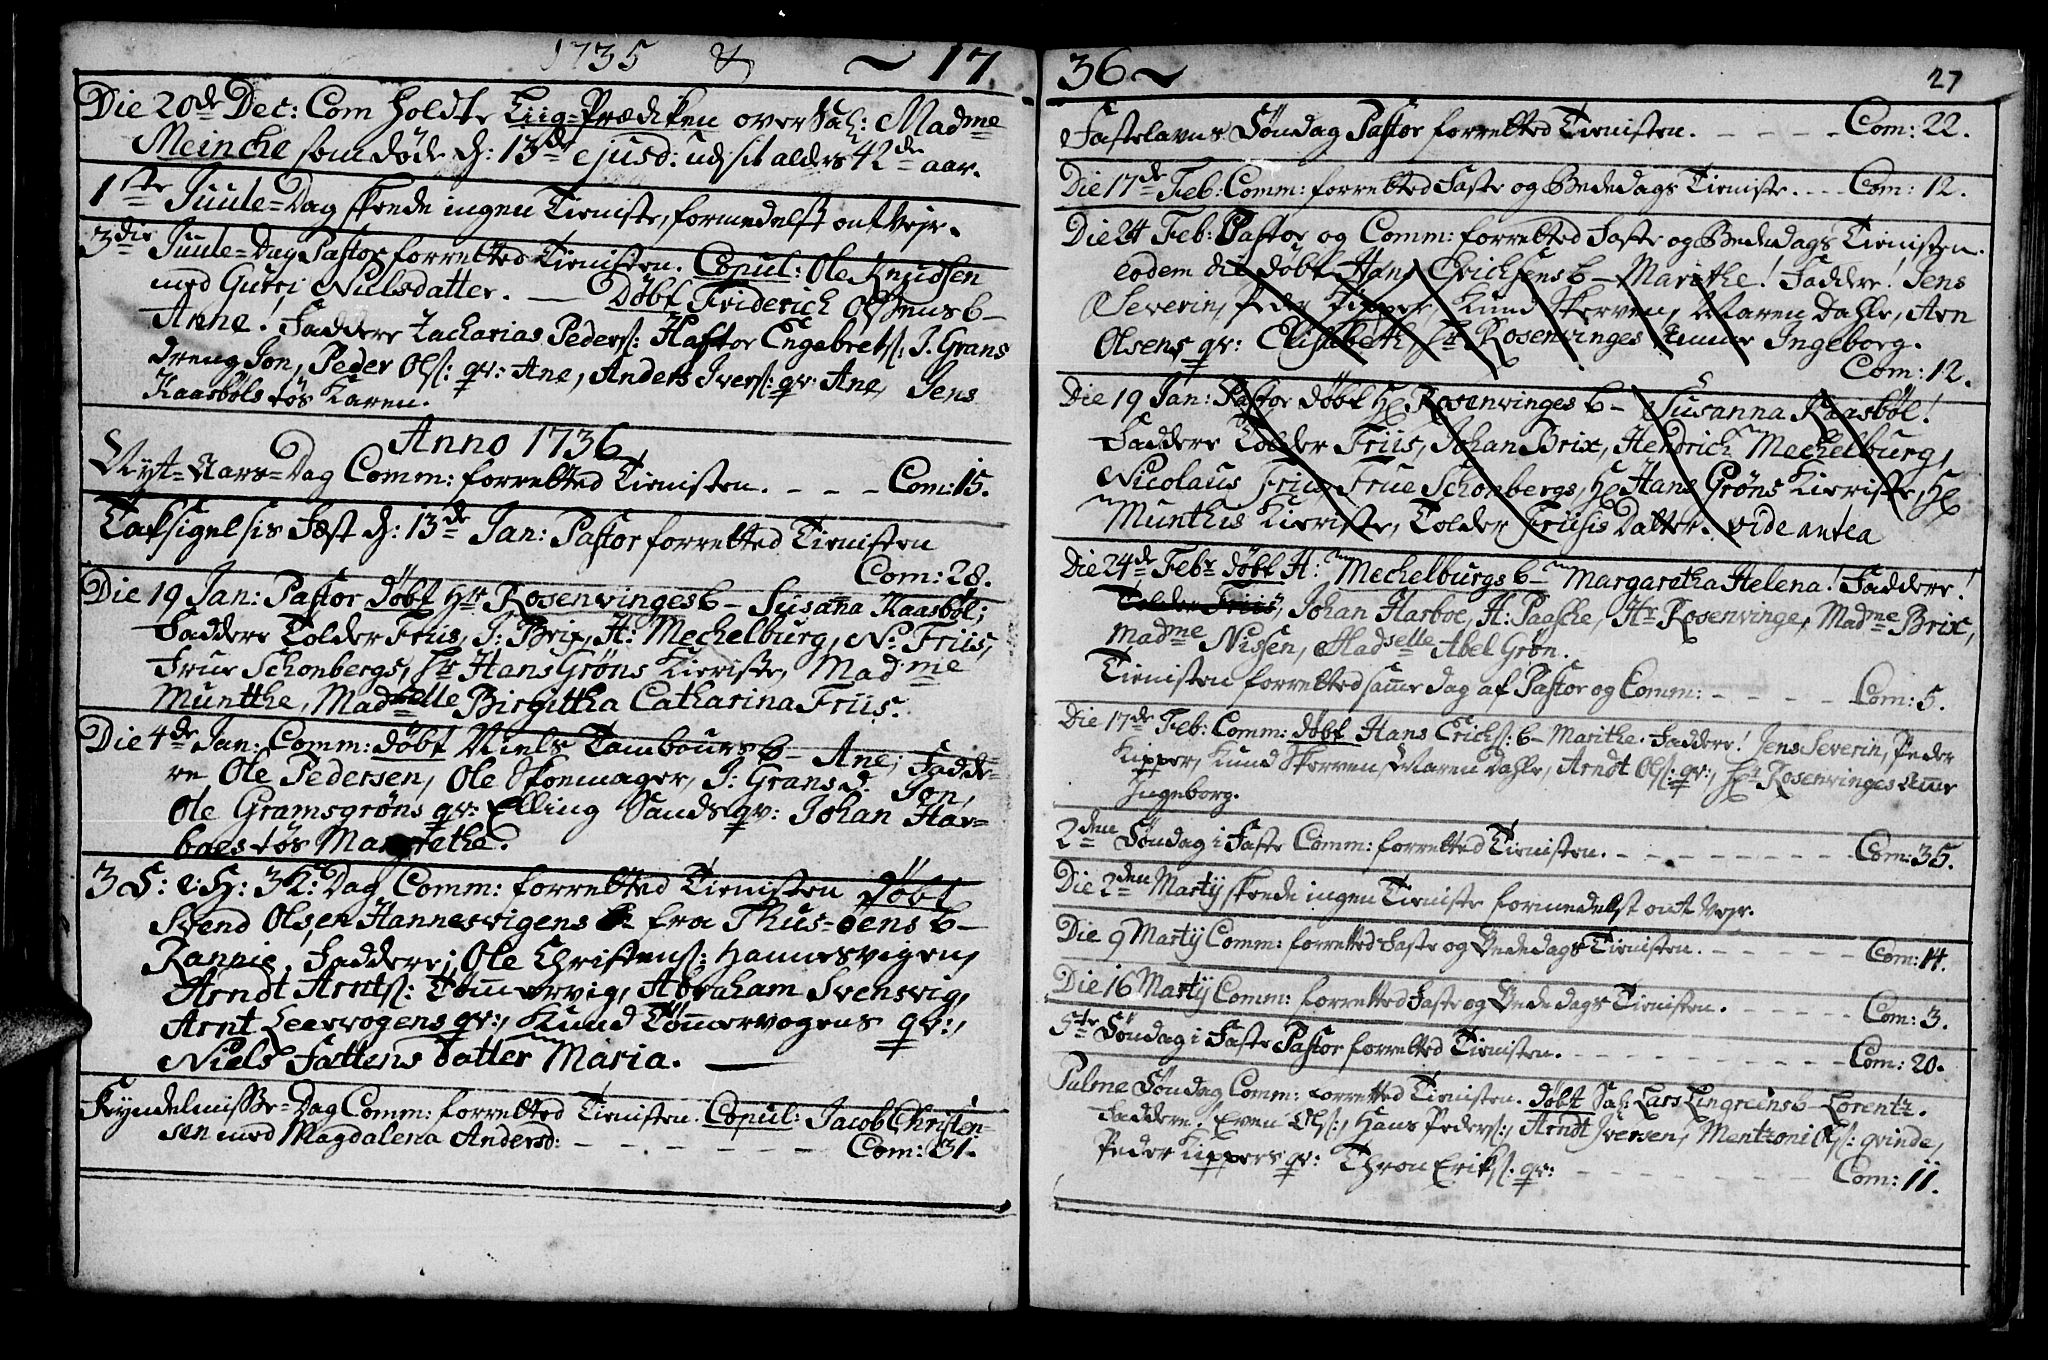 1735 & ~ 17
Die 20de Dec: Com holdte Liig-Prædiken over Sal: Madme
Meincke som døde d: 13de ejusd: udj sit alders 42de aar.
1ste Juule-Dag skeede ingen Tieniste, formedelst ont Vejr.
3die Juule-Dag Pastor forretted Tienisten. Copul: Ole Knudsen
med Guri Nielsdatter. — Døbt Friderich Olsens b-
Anne! Faddere Zacharias Peders: Haftor Engebrets: J. Grams
dreng Jon, Peder Ols: qv: Ane, Anders Ivers: qv: Ane, Jens
Kaasbøls tøs Karen.
Anno 1736
Nyt-Aars-Dag Comm: forretted Tienisten. - - - Com: 15.
Taksigelsis Fæst d: 13de Jan: Pastor forretted Tienisten
Com: 28.
Die 19 Jan: Pastor døbt Hr Rosenvinges b- Susanna Kaasbøl;
Faddere Tolder Friis, J: Brix, H: Mechelburg, N: Friis,
Frue Schønbergs, Hr Hans Grøns Kieriste, Madme
Muntthe, Madselle Birgittha Catharina Friis.
Die 4de Jan: Comm: døbt Niels Tambours b- Ane; Fadde-
re Ole Pedersen, Ole Skoemager, J: Grams d. Jon,
Ole Gramsgrøns qv: Elling Sands qv: Johan Har-
boes tøs Margrethe.
3 S: e: H: 3 K: Dag Comm: forretted Tienisten døbt
Svend Olsen Hannesvigens fra Thus-øens b-
Rannie. Faddere; Ole Christens: Hannesvigen,
Arndt Arnts: Tømmervig, Abraham Svensvig,
Arnt Leervogens qv:, Knud Tømmervogens qv:,
Niels Fættens datter Maria. —
Kyndelmisse-Dag Comm: forretted Tienisten. Copul: Jacob Christen-
sen med Magdalena Andersd: - - - - - Com: 31.
36 ~ 27
Fastelavns Søndag Pastor forretted Tienisten. - - - - Com: 22.
Die 17de Feb: Comm: forretted Faste og Bededags Tieniste. - - Com: 12.
Die 24 Feb: Pastor og Comm: forretted Faste og Bededags Tienisten.
eodem die døbt Hans Erichsens b- Marithe! Faddere! Jens
Severin, Peder Kipper, Knud Skerven, Maren Dahle, Arn
Olsens qv: Elisabeth, Hr Rosenvinges Amme Ingeborg.
Com: 12.
Die 19 Jan: Pastor døbt Hr Rosenvinges b- Susanna Kaasbøl!
Faddere Tolder Friis, Johan Brix, Hendrich Mechelburg,
Nicolaus Friis, Frue Schønbergs, Hr Hans Grøns Kieriste, Hr
Munthis Kieriste, Tolder Friisis Datter. vide antea
Die 24de Febr døbt H: Mechelburgs b- Margaretha Helena! Faddere!
Tolder Friis, Johan Harboe, H: Paasche, Hr Rosenvinge, Madme Brix,
Madme Nissen, Madselle Abel Grøn.
Tienisten forretted samme dag af Pastor og Comm: - - - - Com: 5.
Die 17de Feb: Comm: døbt Hans Erichs: b- Marithe. Faddere! Jens Severin, Peder
Kipper, Knud Skerven, Maren Dahle, Arndt Ols: qv:, Hr Rosenvinges Amme
Ingeborg.
2den Søndag i Faste Comm: forretted Tienisten. - - - - - - - - Com: 35.
Die 2den Martij skeede ingen Tieniste formedelst ont Vejr.
Die 9 Martij Comm: forretted Faste og Bededags Tienisten. - - - - - Com: 14.
Die 16 Martij Comm: forretted Faste og Bededags Tienisten. - - - - Com: 3.
5te Søndag i Faste Pastor forretted Tienisten. - - - - - - - - Com: 20.
Palme Søndag Comm: forretted Tienisten. døbt Sal: Lars Lingreens b- Lorentz.
Faddere. Even Ols:, Hans Peders:, Arndt Iversen, Mentzoni Ols: qvinde,
Peder Kippers qv: Thron Eriks: qv: - - - - - - - Com: 11.